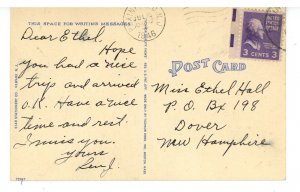 THIS SPACE FOR WRITING MESSAGES
Dear Ethel,
Hope
you had a nice
trip and arrived
O.K. Have a nice
time and rest.
I miss you.
yours
POST CARD
3 CENTS 3
1946
Miss Ethel Hall
P.O. Box 198
Dover
New Hampshire